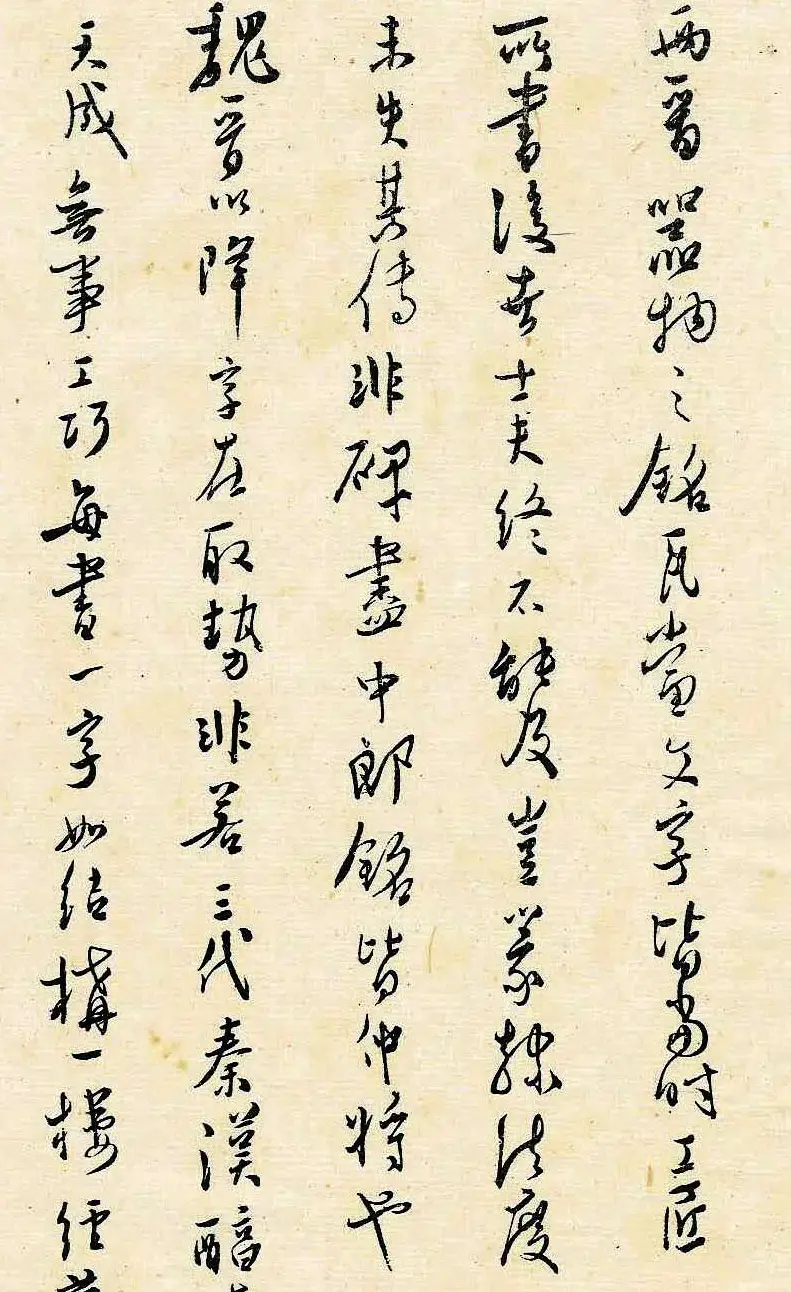 两晋器物之銘瓦當文字皆當时工匠
所書後世士夫終不能及豈篆隸法度
未失其传非碑盡中郎銘皆仲將也
魏晋以降字在取勢非若三代秦漢醇
天成無事工巧每書一字如結構一樓經